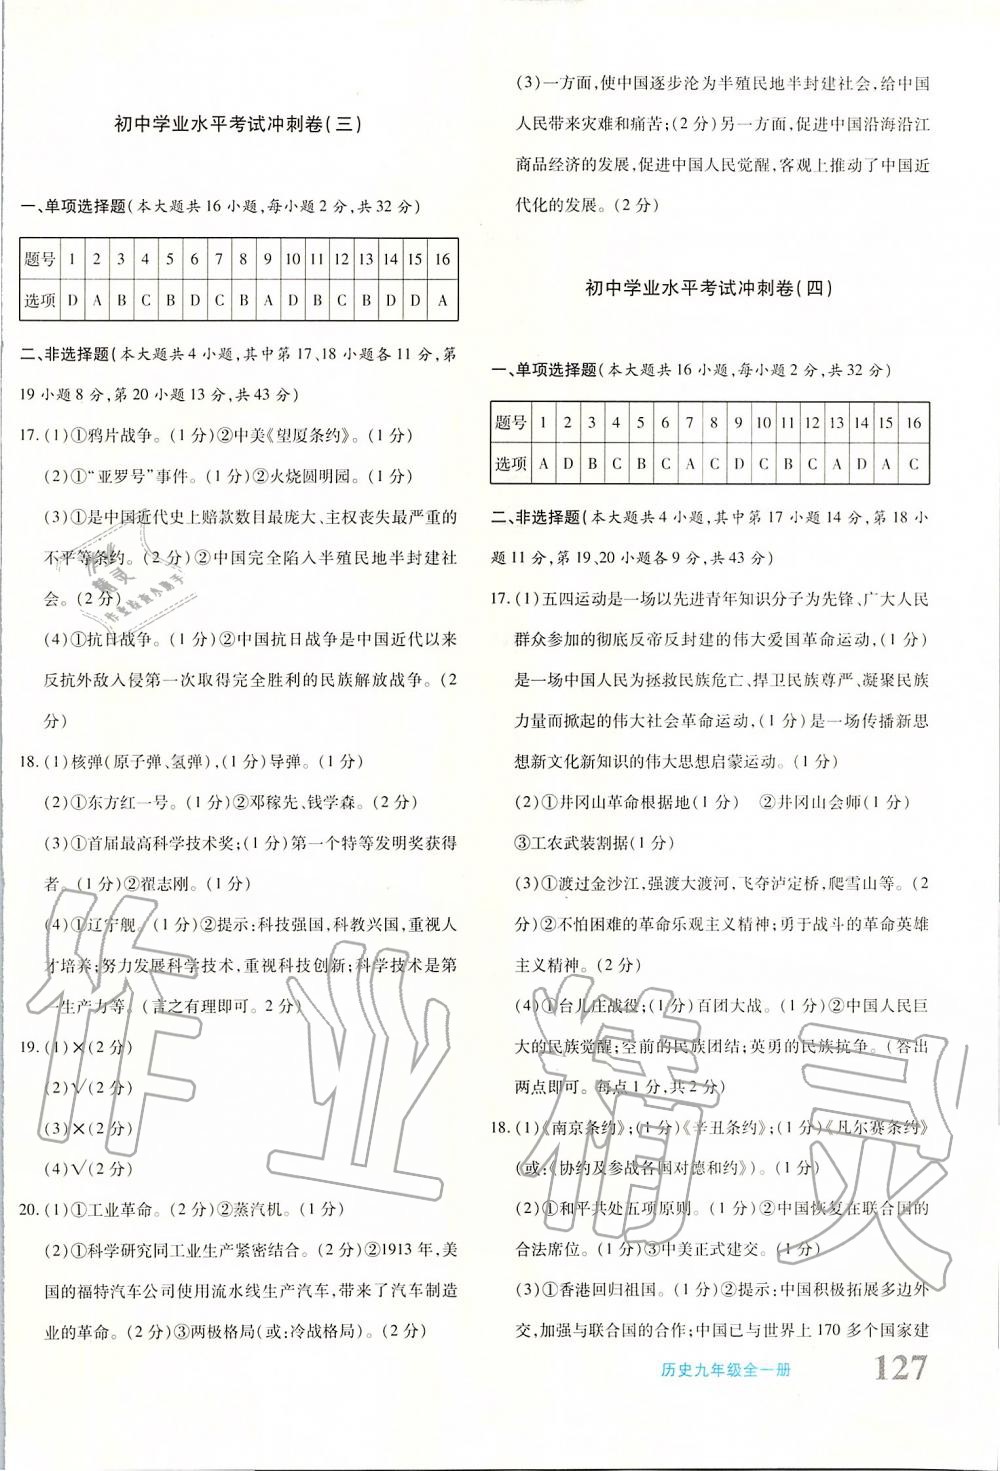 初中学业水平考试冲刺卷(三)
一、单项选择题(本大题共16小题,每小题2分,共32分)
题号 1 2 3 4 5 6 7 8 9 10 11 12 13 14 15 16
选项 D A B C B D C B A C B D C A D A
二、非选择题(本大题共4小题,其中第17、18小题各11分,第
19小题8分,第20小题13分,共43分)
17. (1)①鸦片战争。(1分)②中美《望厦条约》。(1分)
(2)①“亚罗号”事件。(1分)②火烧圆明园。(1分)
(3)①是中国近代史上赔款数目最庞大、主权丧失最严重的
不平等条约。(2分)②中国完全陷入半殖民地半封建社
会。(2分)
(4)①抗日战争。(1分)②中国抗日战争是中国近代以来
反抗外敌入侵第一次取得完全胜利的民族解放战争。(2
分)
18. (1)核弹(原子弹、氢弹),(1分)导弹。(1分)
(2)①东方红一号。(1分)②邓稼先、钱学森。(2分)
(3)①首届最高科学技术奖;(1分)第一个特等发明奖获得
者。(1分)②翟志刚。(1分)
(4)①辽宁舰。(1分)②提示:科技强国,科教兴国,重视人
才培养;努力发展科学技术,重视科技创新;科学技术是第
一生产力等。(言之有理即可。2分)
19. (1)×(2分)
(2)√(2分)
(3)×(2分)
(4)√(2分)
20. (1)①工业革命。(2分)②蒸汽机。(1分)
(2)①科学研究同工业生产紧密结合。(2分)②1913年,美
国的福特汽车公司使用流水线生产汽车,带来了汽车制造
业的革命。(2分)③两极格局(或:冷战格局)。(2分)
(3)一方面,使中国逐步沦为半殖民地半封建社会,给中国
人民带来灾难和痛苦;(2分)另一方面,促进中国沿海沿江
商品经济的发展,促进中国人民觉醒,客观上推动了中国近
代化的发展。(2分)
初中学业水平考试冲刺卷(四)
一、单项选择题(本大题共16小题,每小题2分,共32分)
题号 1 2 3 4 5 6 7 8 9 10 11 12 13 14 15 16
选项 A D B C B C A C D B D B D C A C
二、非选择题(本大题共4小题,其中第17小题14分,第18小
题11分,第19、20小题各9分,共43分)
17. (1)五四运动是一场以先进青年知识分子为先锋、广大人民
群众参加的彻底反帝反封建的伟大爱国革命运动,(1分)
是一场中国人民为拯救民族危亡、捍卫民族尊严、凝聚民族
力量而掀起的伟大社会革命运动,(1分)是一场传播新思
想新文化新知识的伟大思想启蒙运动。(1分)
(2)①井冈山革命根据地(1分) ②井冈山会师(1分)
③工农武装割据(1分)
(3)①渡过金沙江,强渡大渡河,飞夺泸定桥,爬雪山等。(2
分)②不怕困难的革命乐观主义精神;勇于战斗的革命英雄
主义精神。(2分)
(4)①台儿庄战役;(1分)百团大战。(1分)②中国人民巨
大的民族觉醒;空前的民族团结;英勇的民族抗争。(答出
两点即可。每点1分,共2分)
18. (1)《南京条约》;(1分)《辛丑条约》;(1分)《凡尔赛条约》
(或:《协约及参战各国对德和约》)。(1分)
(2)①和平共处五项原则。(1分)②中国恢复在联合国的
合法席位。(1分)③中美正式建交。(1分)
(3)①香港回归祖国。(1分)②提示:中国积极拓展多边外
交,加强与联合国的合作;中国已与世界上170多个国家建
历史九年级全一册 127
作业精灵
精灵
作业检查小助手